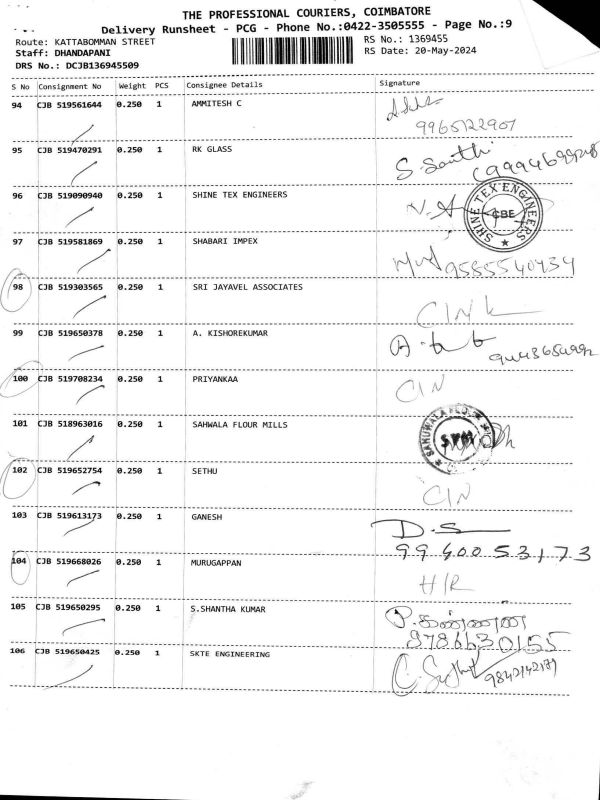 THE PROFESSIONAL COURIERS, COIMBATORE
Delivery Runsheet - PCG - Phone No.:0422-3505555 - Page No.:9
Route: KATTABOMMAN STREET
Staff: DHANDAPANI
DRS No.: DCJB136945509
RS No.: 1369455
RS Date: 20-May-2024
S No Consignment No Weight PCS Consignee Details Signature
94 CJB 519561644 0.250 1 AMMITESH C
9965122907
95 CJB 519470291 0.250 1 RK GLASS S. Santhi
96 CJB 519090940 0.250 1 SHINE TEX ENGINEERS
SHINE TEX ENGINEERS
CBE
97 CJB 519581869 0.250 1 SHABARI IMPEX
9585540434
98 CJB 519303565 0.250 1 SRI JAYAVEL ASSOCIATES
99 CJB 519650378 0.250 1 A. KISHOREKUMAR
100 CJB 519708234 0.250 1 PRIYANKAA
CIN
101 CJB 518963016 0.250 1 SAHWALA FLOUR MILLS
102 CJB 519652754 0.250 1 SETHU
CIN
103 CJB 519613173 0.250 1 GANESH D.S
9940053173
104 CJB 519668026 0.250 1 MURUGAPPAN
H/R
105 CJB 519650295 0.250 1 S.SHANTHA KUMAR
9786630155
106 CJB 519650425 0.250 1 SKTE ENGINEERING